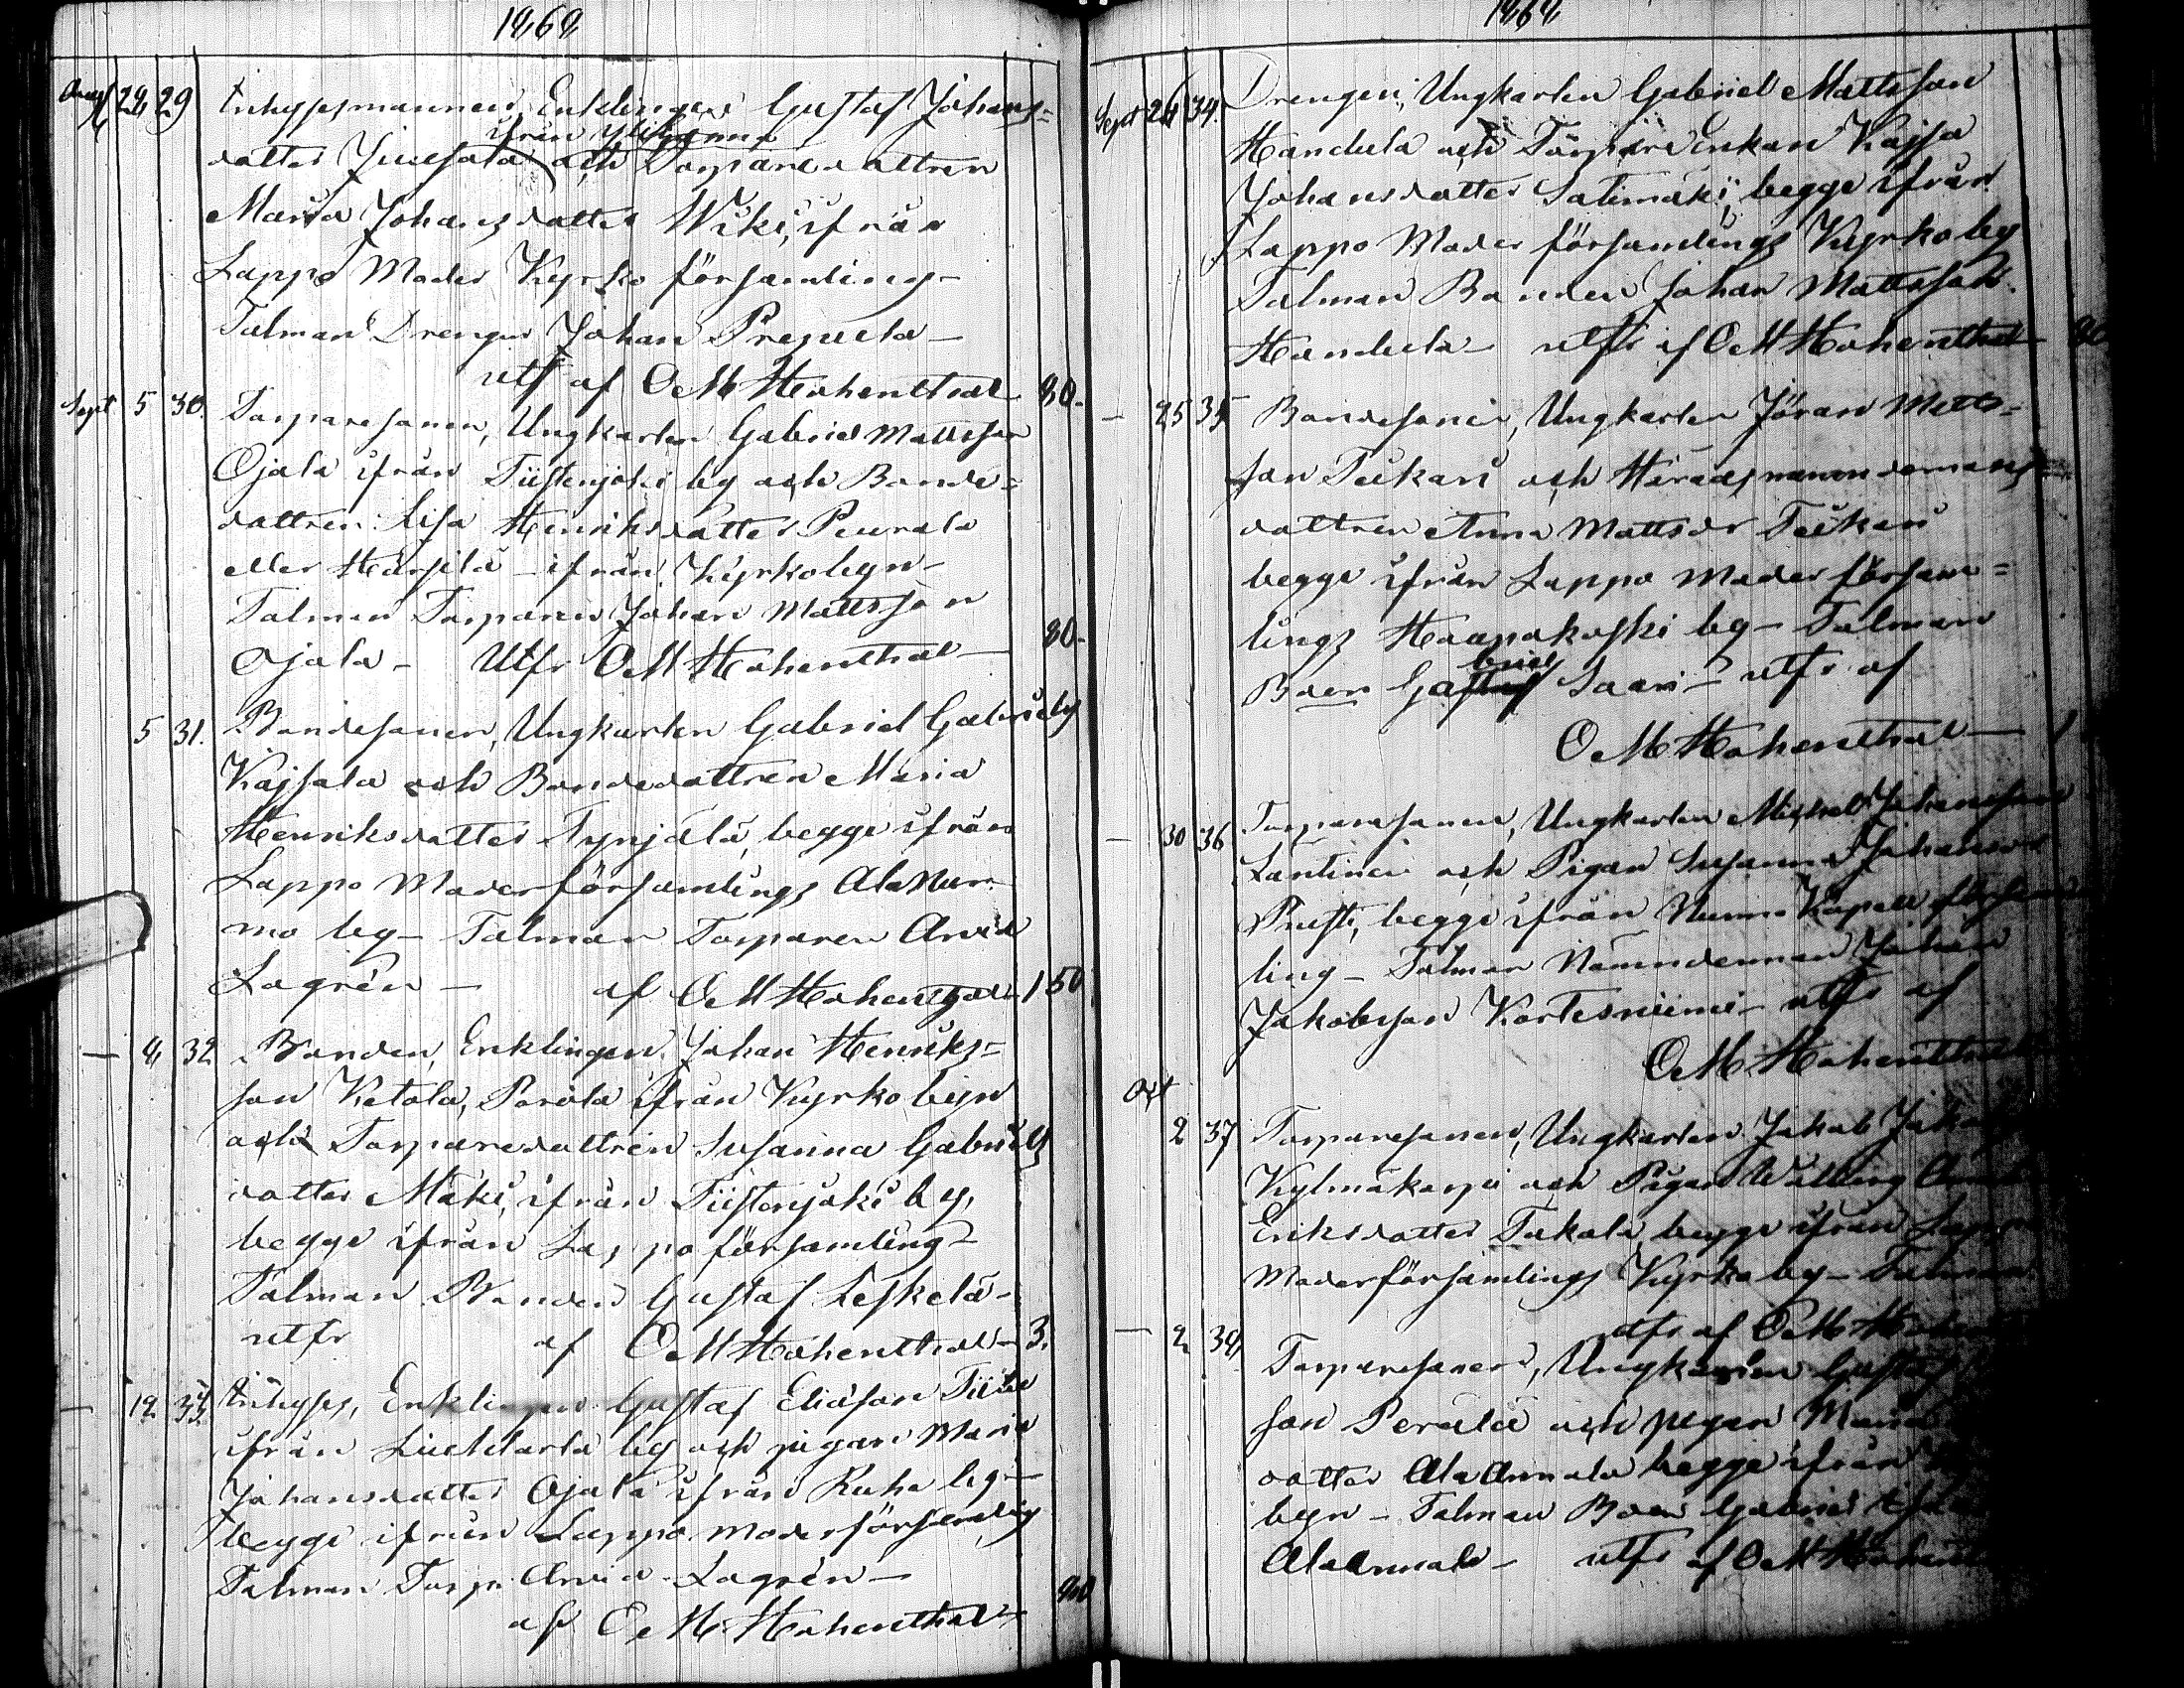 1868
Aug 28 29 Inhyssmannen Enklingen Gustaf Johans=
ifrån Ylihärmä
dotter Jucsala och Torparedottren
Maria Johansdotter Wiki, ifrån
Lappo Moder Kyrko församling-
Talman Drengen Johan Prepula-
utf af O M Hohenthal 80.
Sept 5 30. Torparesonen, Ungkarlen Gabriel Mattsson
Ojala ifrån Tiistenjoki by och Bonde=
dottren Lisa Henriksdotter Peurala
eller Harsila - ifrån Kyrkobyn-
Talman Torparen Johan Mattsson
Ojala - Utfr O M Hohenthal - 80.
5 31. Bondesonen, Ungkarlen Gabriel Gabriels
Kajsala och Bondedottren Maria
Henriksdotter Tynjälä, begge ifrån
Lappo Moderförsamlings AlaNur-
mo by - Talman Torparen Arvid
Lagrén - af O M Hohenthal 1 50
- 8 32 Bonden, Enklingen Johan Henriks=
son Ketola, Porola ifrån Kyrko byn
och Torparedottren Susanna Gabriels
dotter Mäki, ifrån Tiistenjoki by,
begge ifrån Lappo församling-
Talman Bonden Gustaf Leskelä-
utfr af O M Hohenthal - 3.
- 12 33. Inhyses, Enklingen Gustaf Eliasson
ifrån Liuhtarla by och pigan Maria
Johansdotter Ojala ifrån Ruha by-
begge ifrån Lappo moderförsamling
Talman Torp. Arvid Lagrén -
af O M Hohenthal 80
1868
Sept 26 34. Drengen, Ungkarlen Gabriel Mattsson
Handula och Torpare Enkan Kajsa
Johansdotter Salimäki, begge ifrån
Lappo Moder församlings Kyrko by
Talman Bonden Johan Mattsson
Handula - utfr af O M Hohenthal 80
- 25 35 Bondesonen, Ungkarlen Jöran Matts=
son Tiikari och Häradsnämndemans=
dottren Anna Mattsdr Tiikari
begge ifrån Lappo Moder försam=
lings Haapakoski by - Talman
briel
Bden Gastaf Saari - utfr af
O M Hohenthal - 1
- 30 36 Torparesonen, Ungkarlen Michel Johansson
Lantinen och Pigan Susanna Johansdr
Prusti, begge ifrån Nurmo Kapell församl
ling - Talman Nämndemnan Johan
Jakobsson Kortesniemi - utfr af
O M Hohenthal
Oct
2 37 Torparesonen, Ungkarlen Jakob
Kylmäkarpi och Pigan Walborg
Eriksdotter Takala, begge ifrån Lappo
Moderförsamlings Kyrko by - Talman
utfr af O M
- 2 38 Torparesonen, Ungkarlen Gustaf
son Perälä och pigan Maria
dotter AlaAnnala begge ifrån
byn - Talman Bden Gabriel
AlaAnnala - utfr af O M Hohenthal